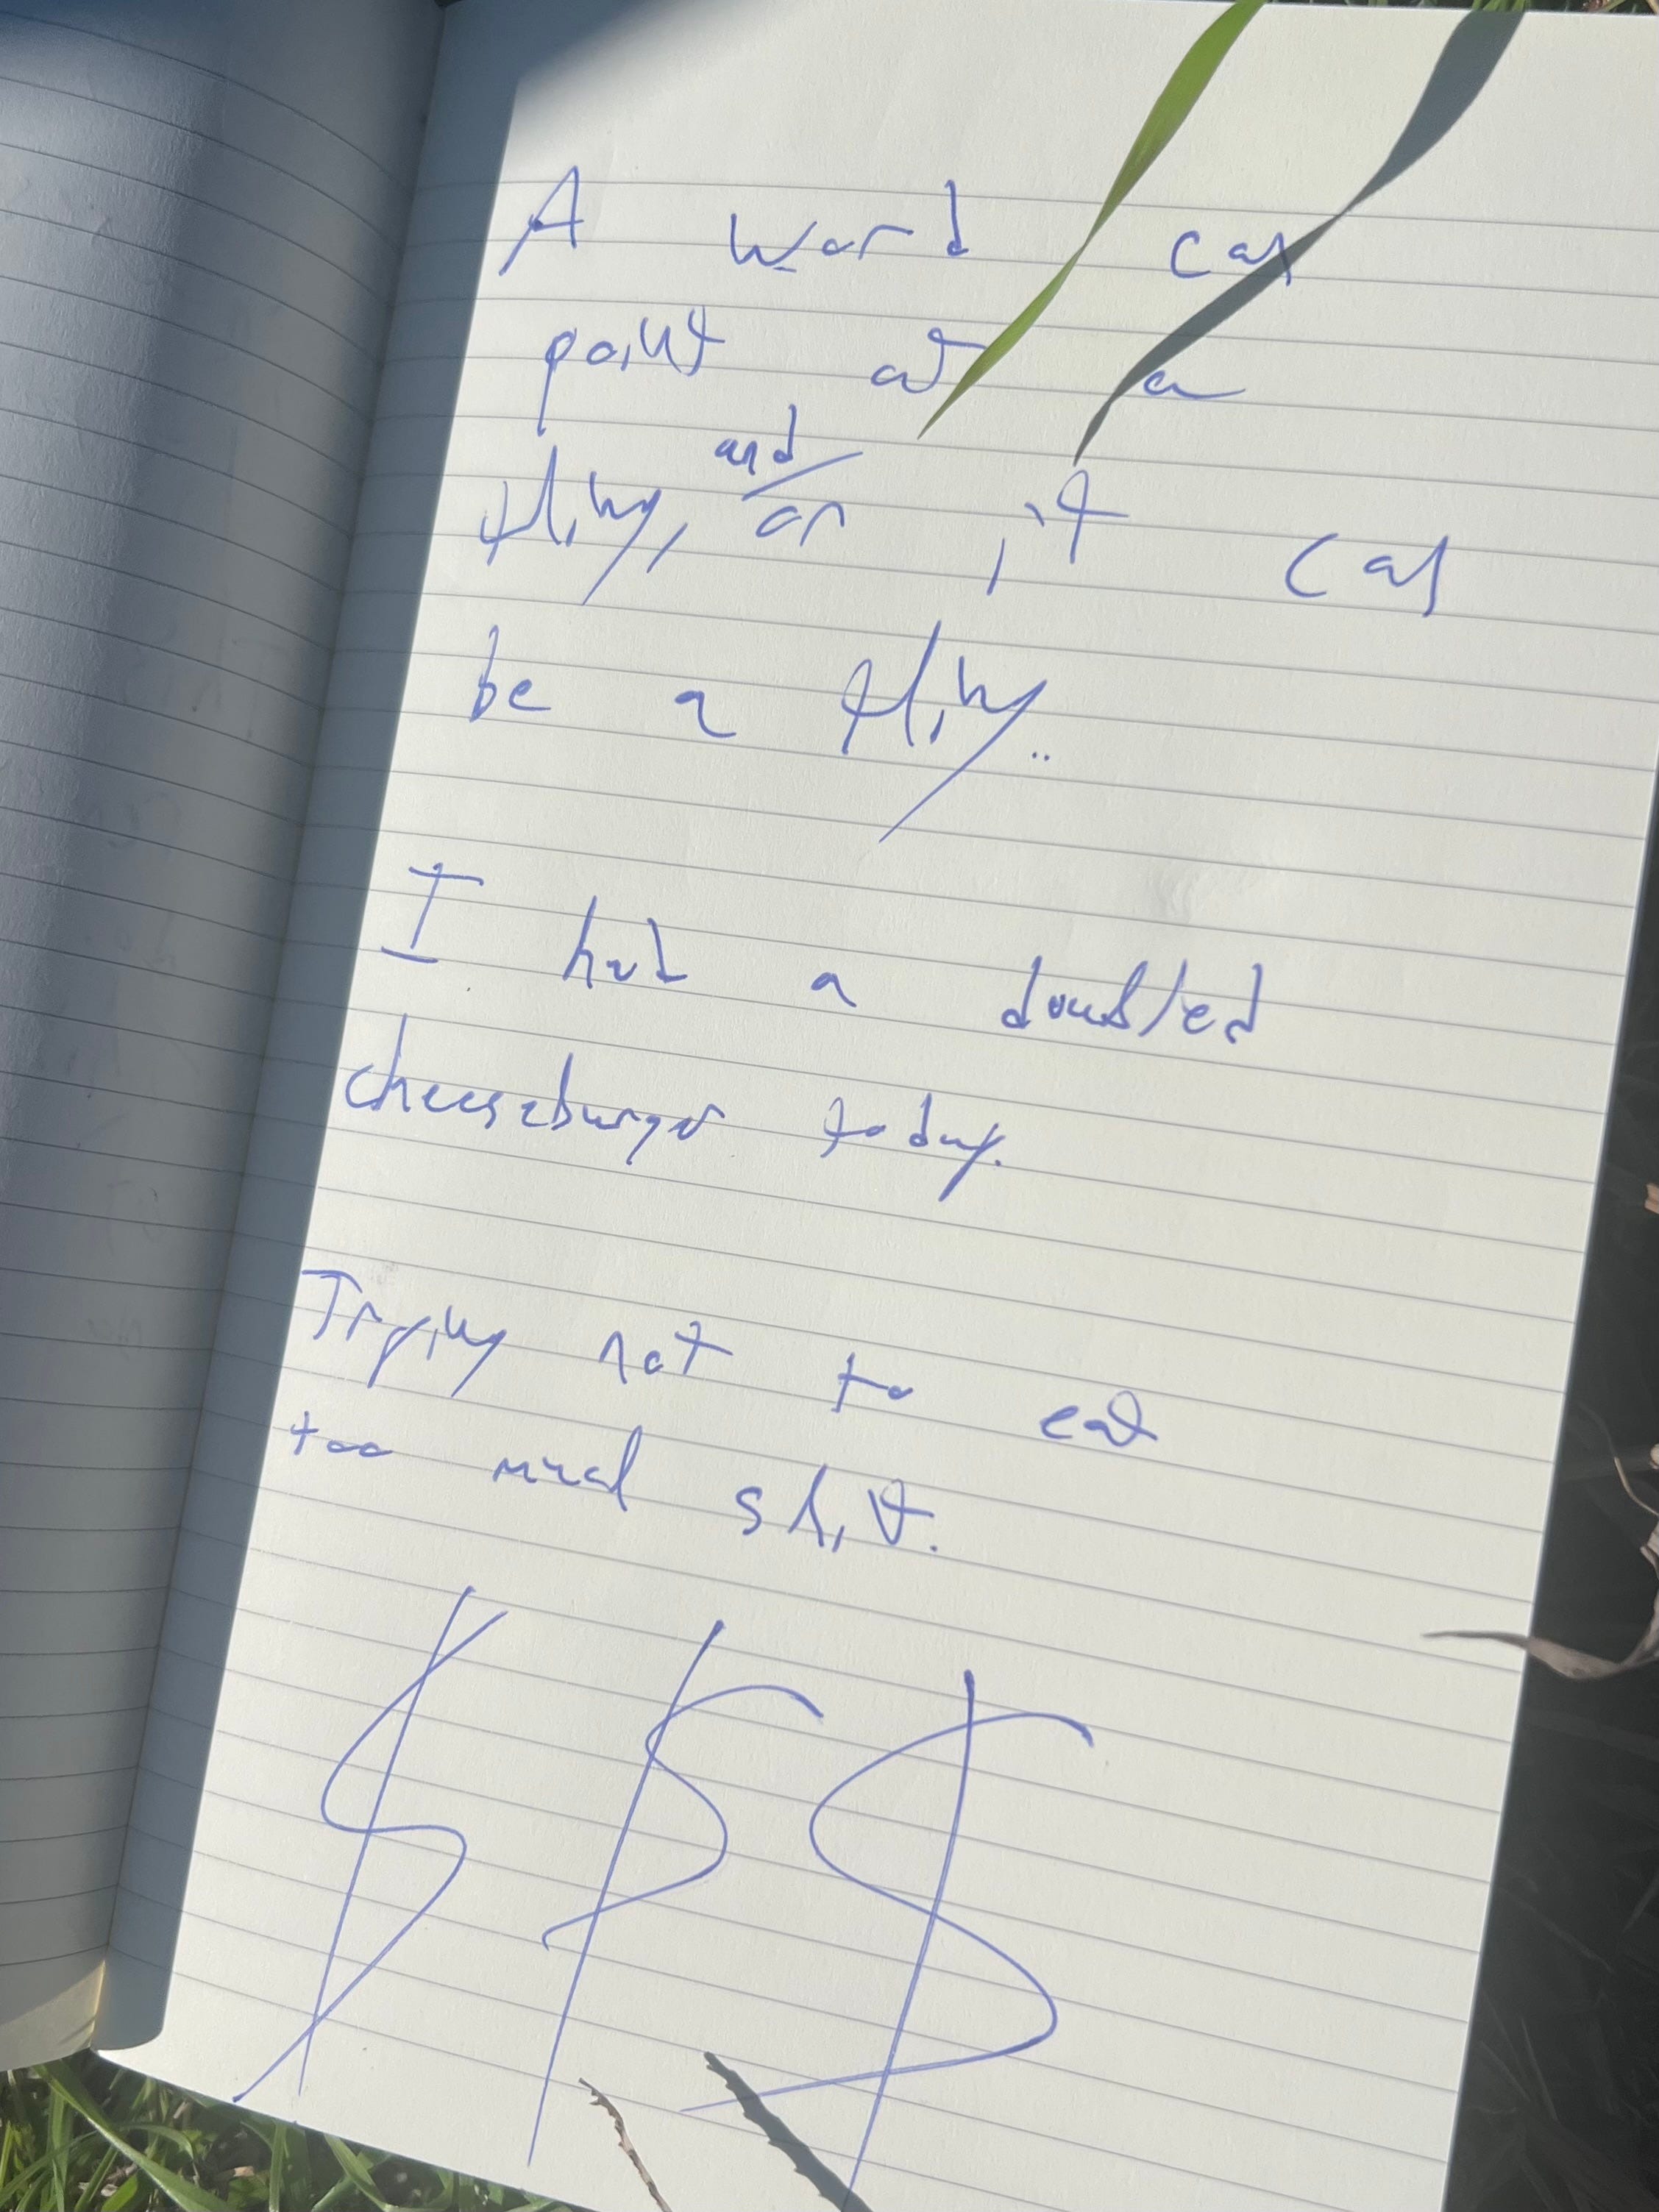 A word can
point at a
thing, and/or, it can
be a thing..
I had a doubled
cheeseburger today.
Trying not to eat
too much shit.
$ $ $